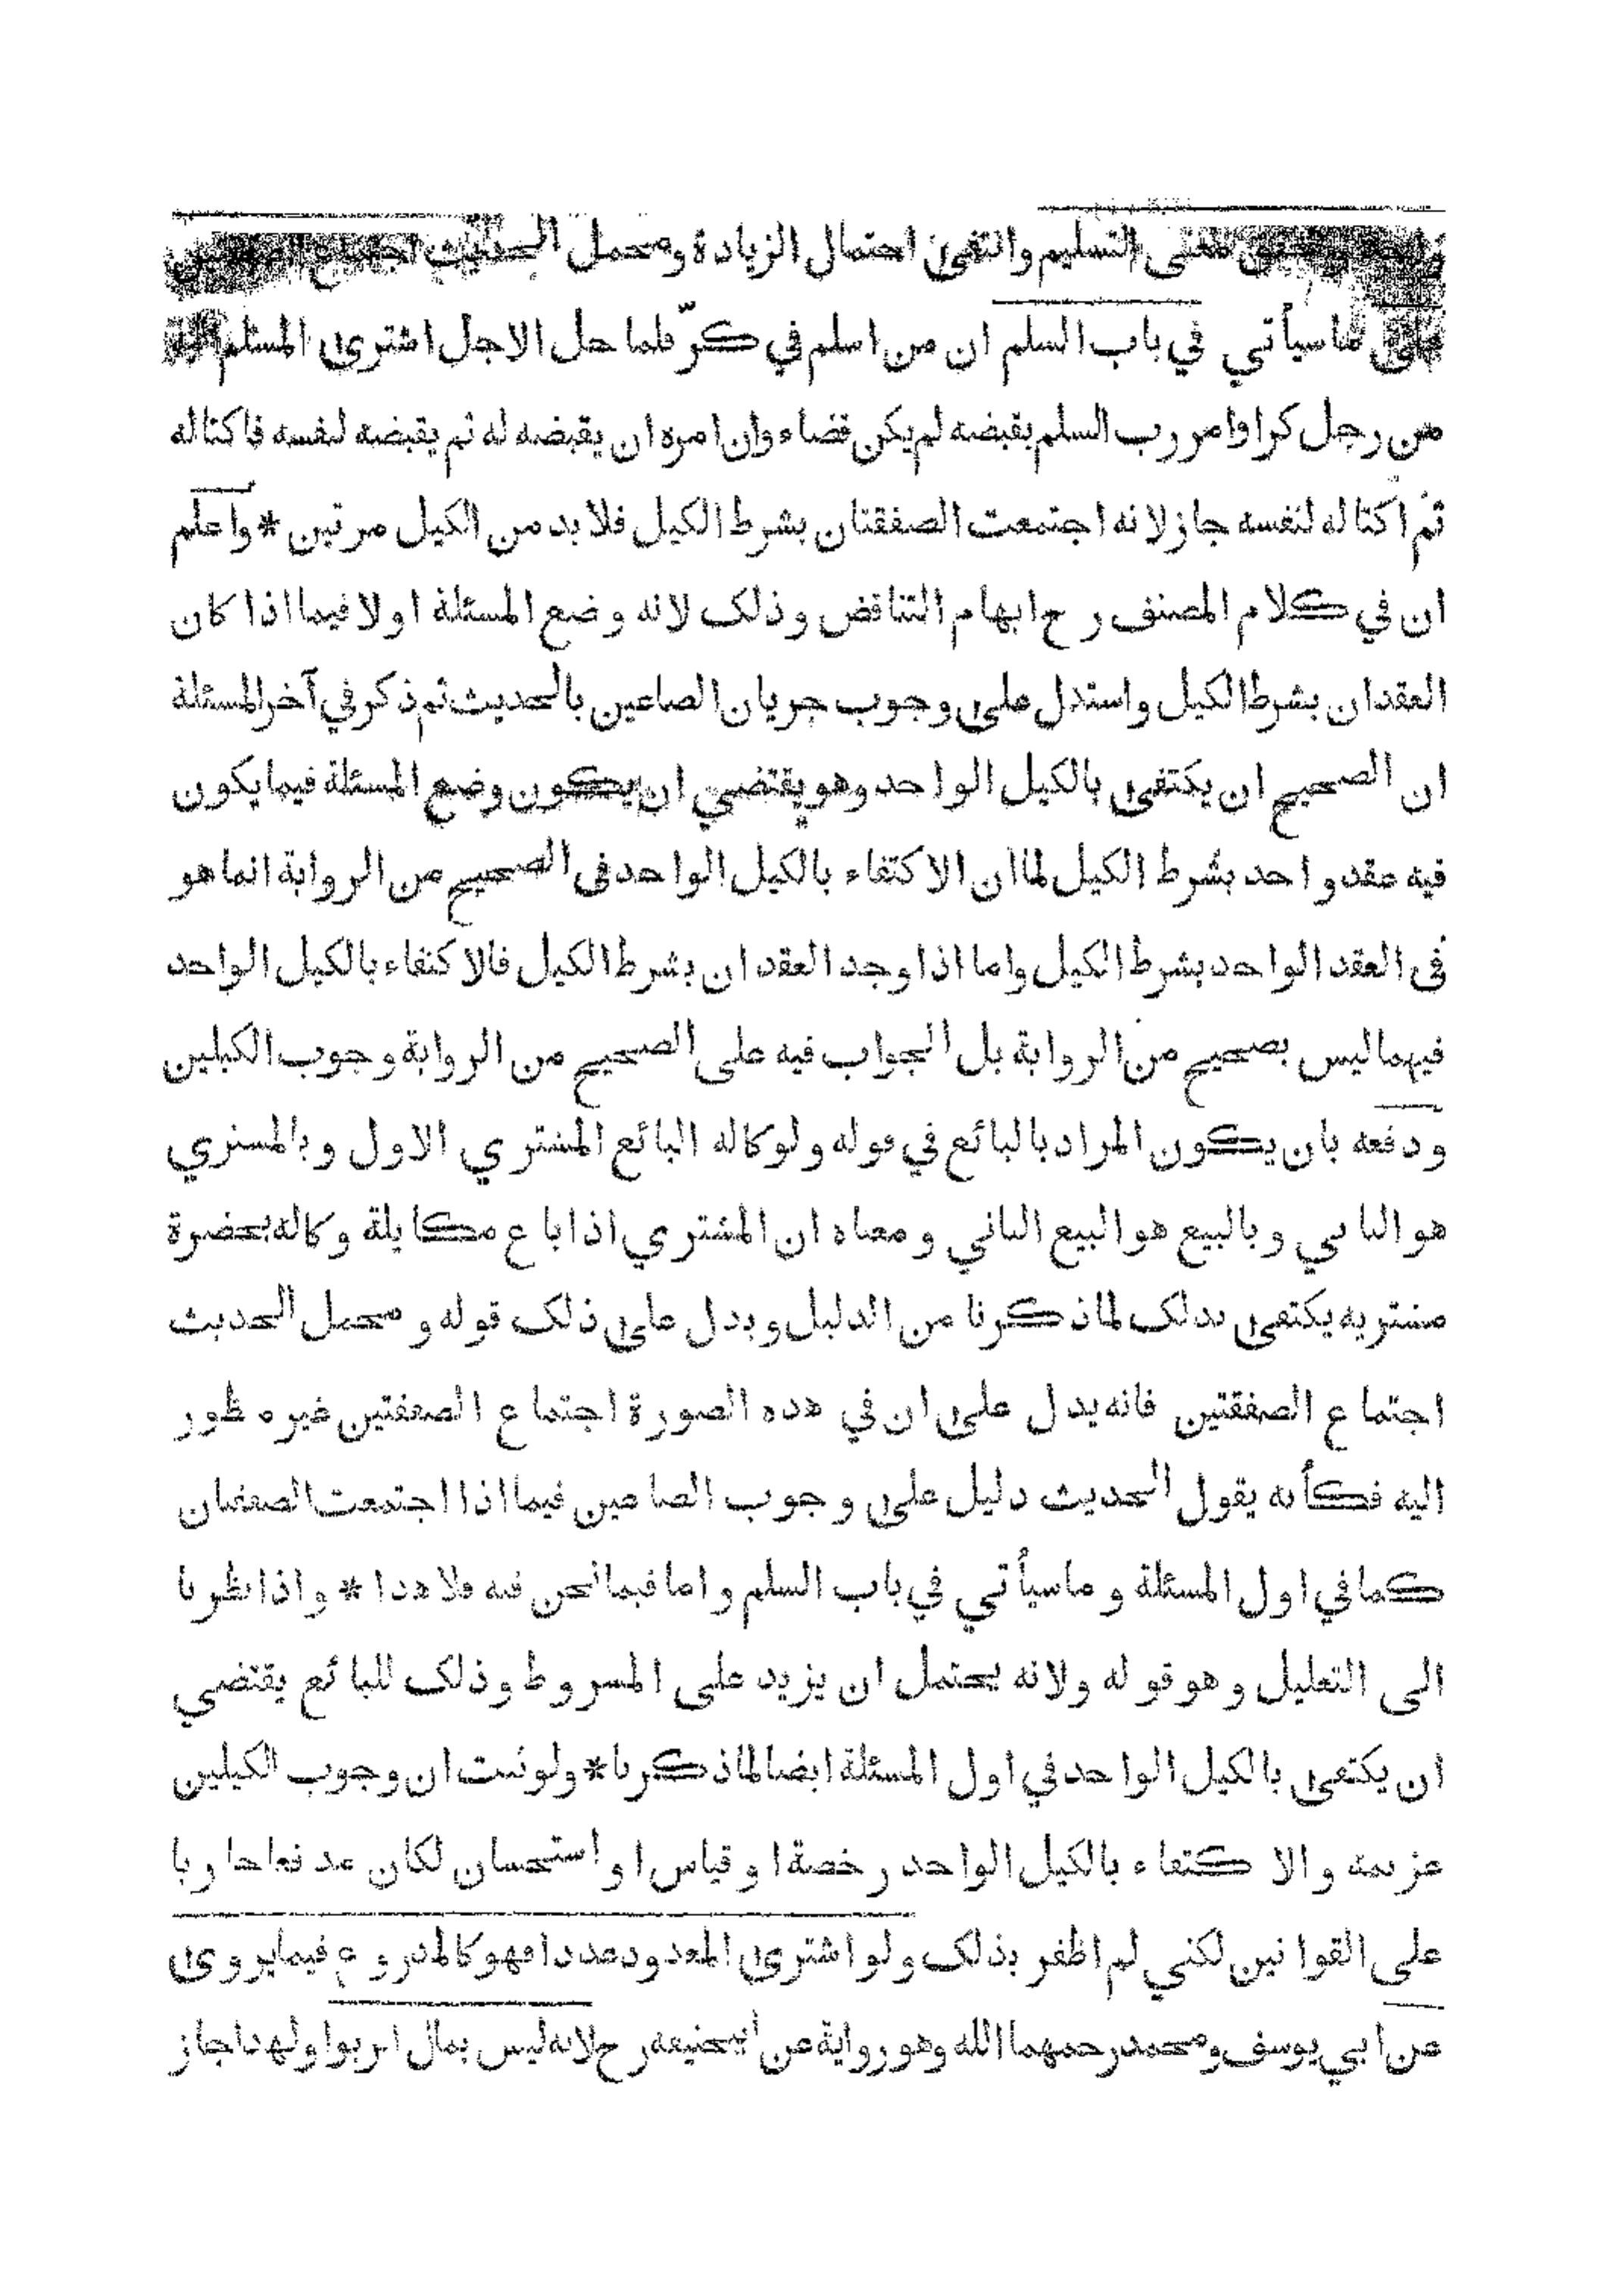 معنى التسليم وانتفى احتمال الزيادة ومحمل الحديث اجتماع الصفقتين
على ماسيأتي في باب السلم ان من اسلم في كرّ فلما حل الاجل اشترى المسلم اليه
من رجل كرا وامر رب السلم بقبضه لم يكن قضاء وان امره ان يقبضه له ثم يقبضه لنفسه فاكتاله
ثم اكتاله لنفسه جاز لانه اجتمعت الصفقتان بشرط الكيل فلا بد من الكيل مرتين * واعلم
ان في كلام المصنف رح ابهام التناقض وذلك لانه وضع المسئلة اولا فيما اذا كان
العقدان بشرط الكيل واستدل على وجوب جريان الصاعين بالحديث ثم ذكر في آخر المسئلة
ان الصحيح ان يكتفى بالكيل الواحد وهو يقتضي ان يكون وضع المسئلة فيما يكون
فيه عقد واحد بشرط الكيل لما ان الاكتفاء بالكيل الواحد في الصحيح من الرواية انما هو
في العقد الواحد بشرط الكيل واما اذا وجد العقدان بشرط الكيل فالاكتفاء بالكيل الواحد
فيهما ليس بصحيح من الرواية بل الجواب فيه على الصحيح من الرواية وجوب الكيلين
ودفعه بان يكون المراد بالبائع في قوله ولو كاله البائع المشتري الاول وبالمشتري
هو الثاني وبالبيع هو البيع الثاني ومعناه ان المشتري اذا باع مكايلة وكاله بحضرة
مشتريه يكتفى بذلك لما ذكرنا من الدليل ويدل على ذلك قوله ومحمل الحديث
اجتماع الصفقتين فانه يدل على ان في هذه الصورة اجتماع الصفقتين غير منظور
اليه فكأنه يقول الحديث دليل على وجوب الصاعين فيما اذا اجتمعت الصفقتان
كما في اول المسئلة وماسيأتي في باب السلم واما فيما نحن فيه فلا هذا * واذا نظرنا
الى التعليل وهو قوله ولانه يحتمل ان يزيد على المشروط وذلك للبائع يقتضي
ان يكتفى بالكيل الواحد في اول المسئلة ايضا لما ذكرنا * ولو ثبت ان وجوب الكيلين
عزيمة والاكتفاء بالكيل الواحد رخصة او قياس او استحسان لكان مدفعا جاريا
على القوانين لكني لم اظفر بذلك ولو اشترى المعدود عددا فهو كالمذروع فيما يروى
عن ابي يوسف ومحمد رحمهما الله وهو رواية عن ابيحنيفه رح لانه ليس بمال الربوا ولهذا جاز